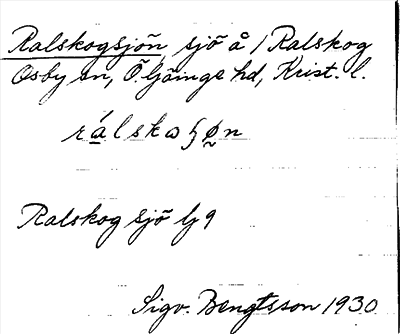 Ralskogsjön, sjö å 1 Ralskog
Osby sn, Ö. Göinge hd, Krist. l.
rálskaꞩø̰n
Ralskog sjö lj 9
Sigv. Bengtsson 1930